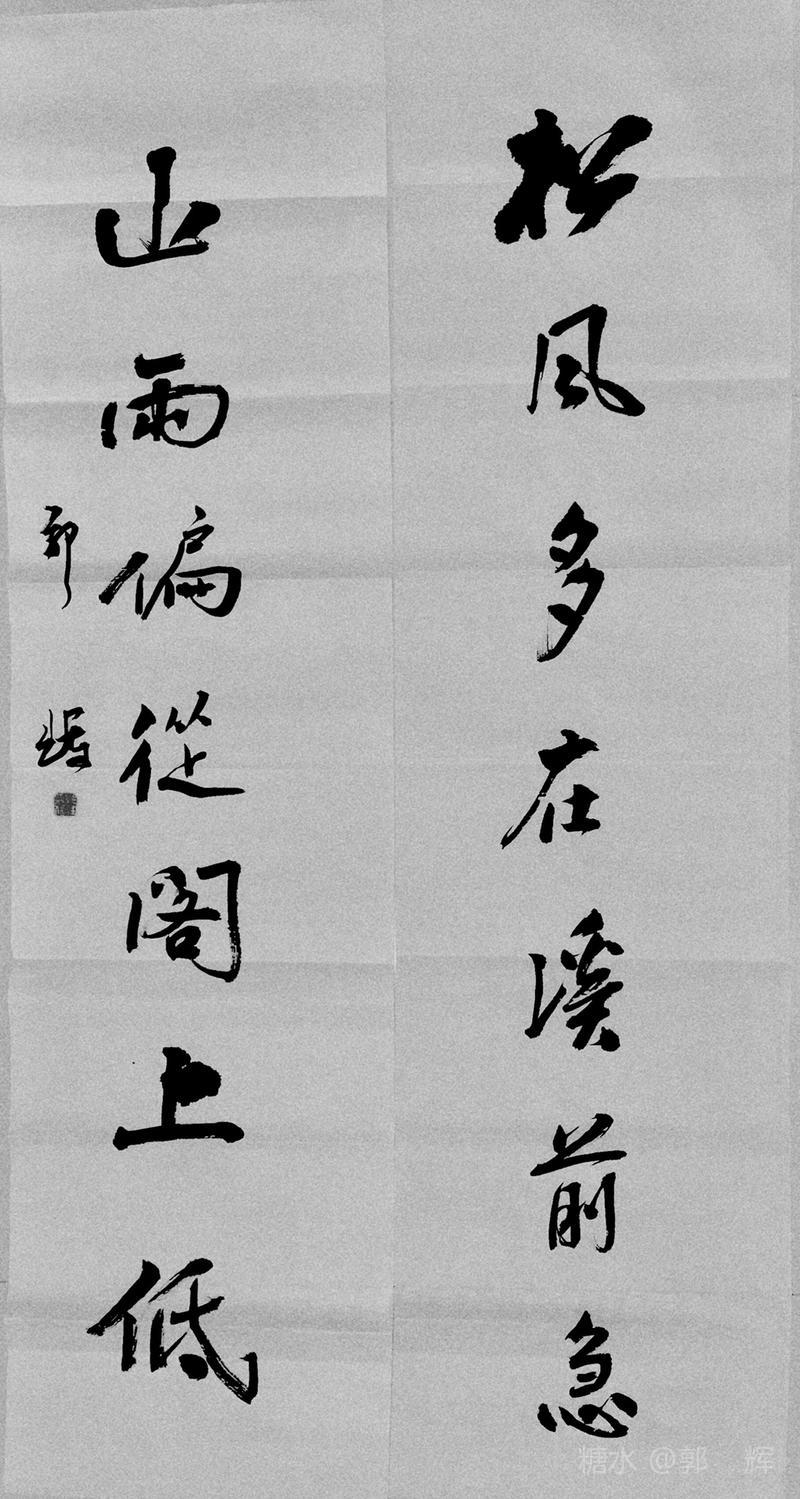 松风多在溪前急
山雨偏從阁上低
郭
糖水 @郭 辉